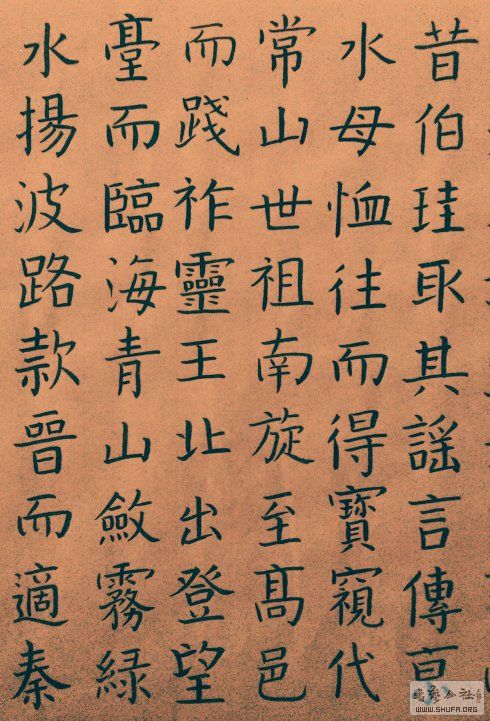 昔伯珪取其謠言傳京
水母恤往而得寶窺代
常山世祖南旋至髙邑
而踐祚靈王北出登望
臺而臨海青山斂霧緑
水揚波路款晉而適秦
WWW.SHUFA.ORG